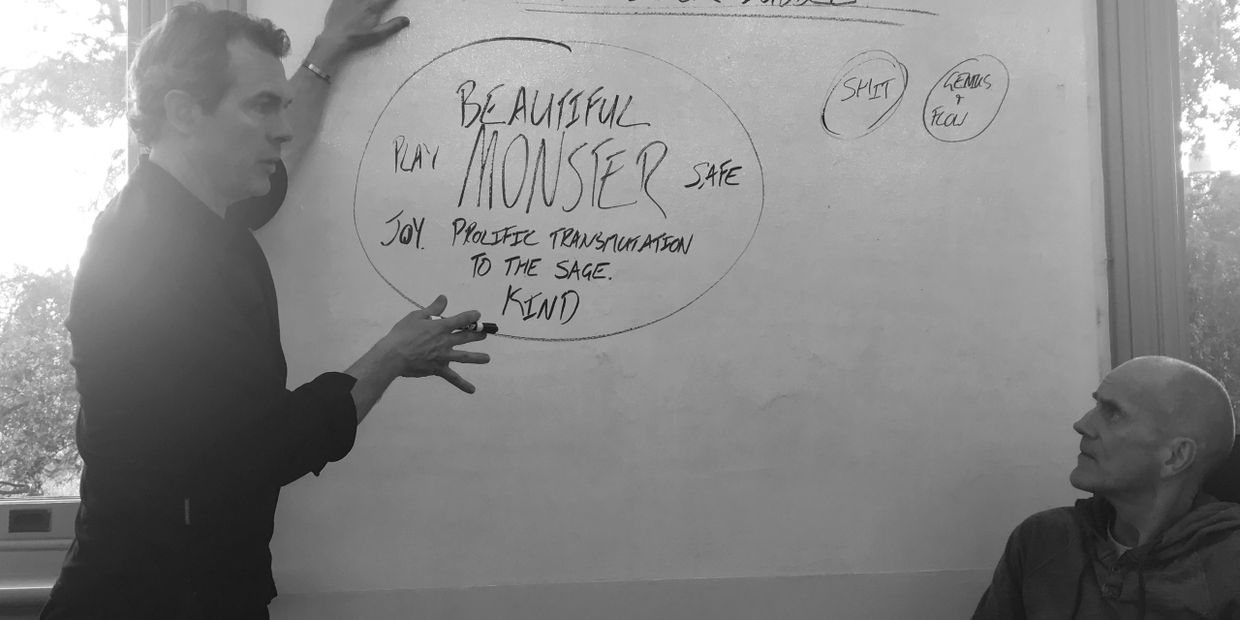 BEAUTIFUL
PLAY MONSTER SAFE
JOY. PROLIFIC TRANSMUTATION
TO THE SAGE.
KIND
SHIT
GENIUS
+
FLOW